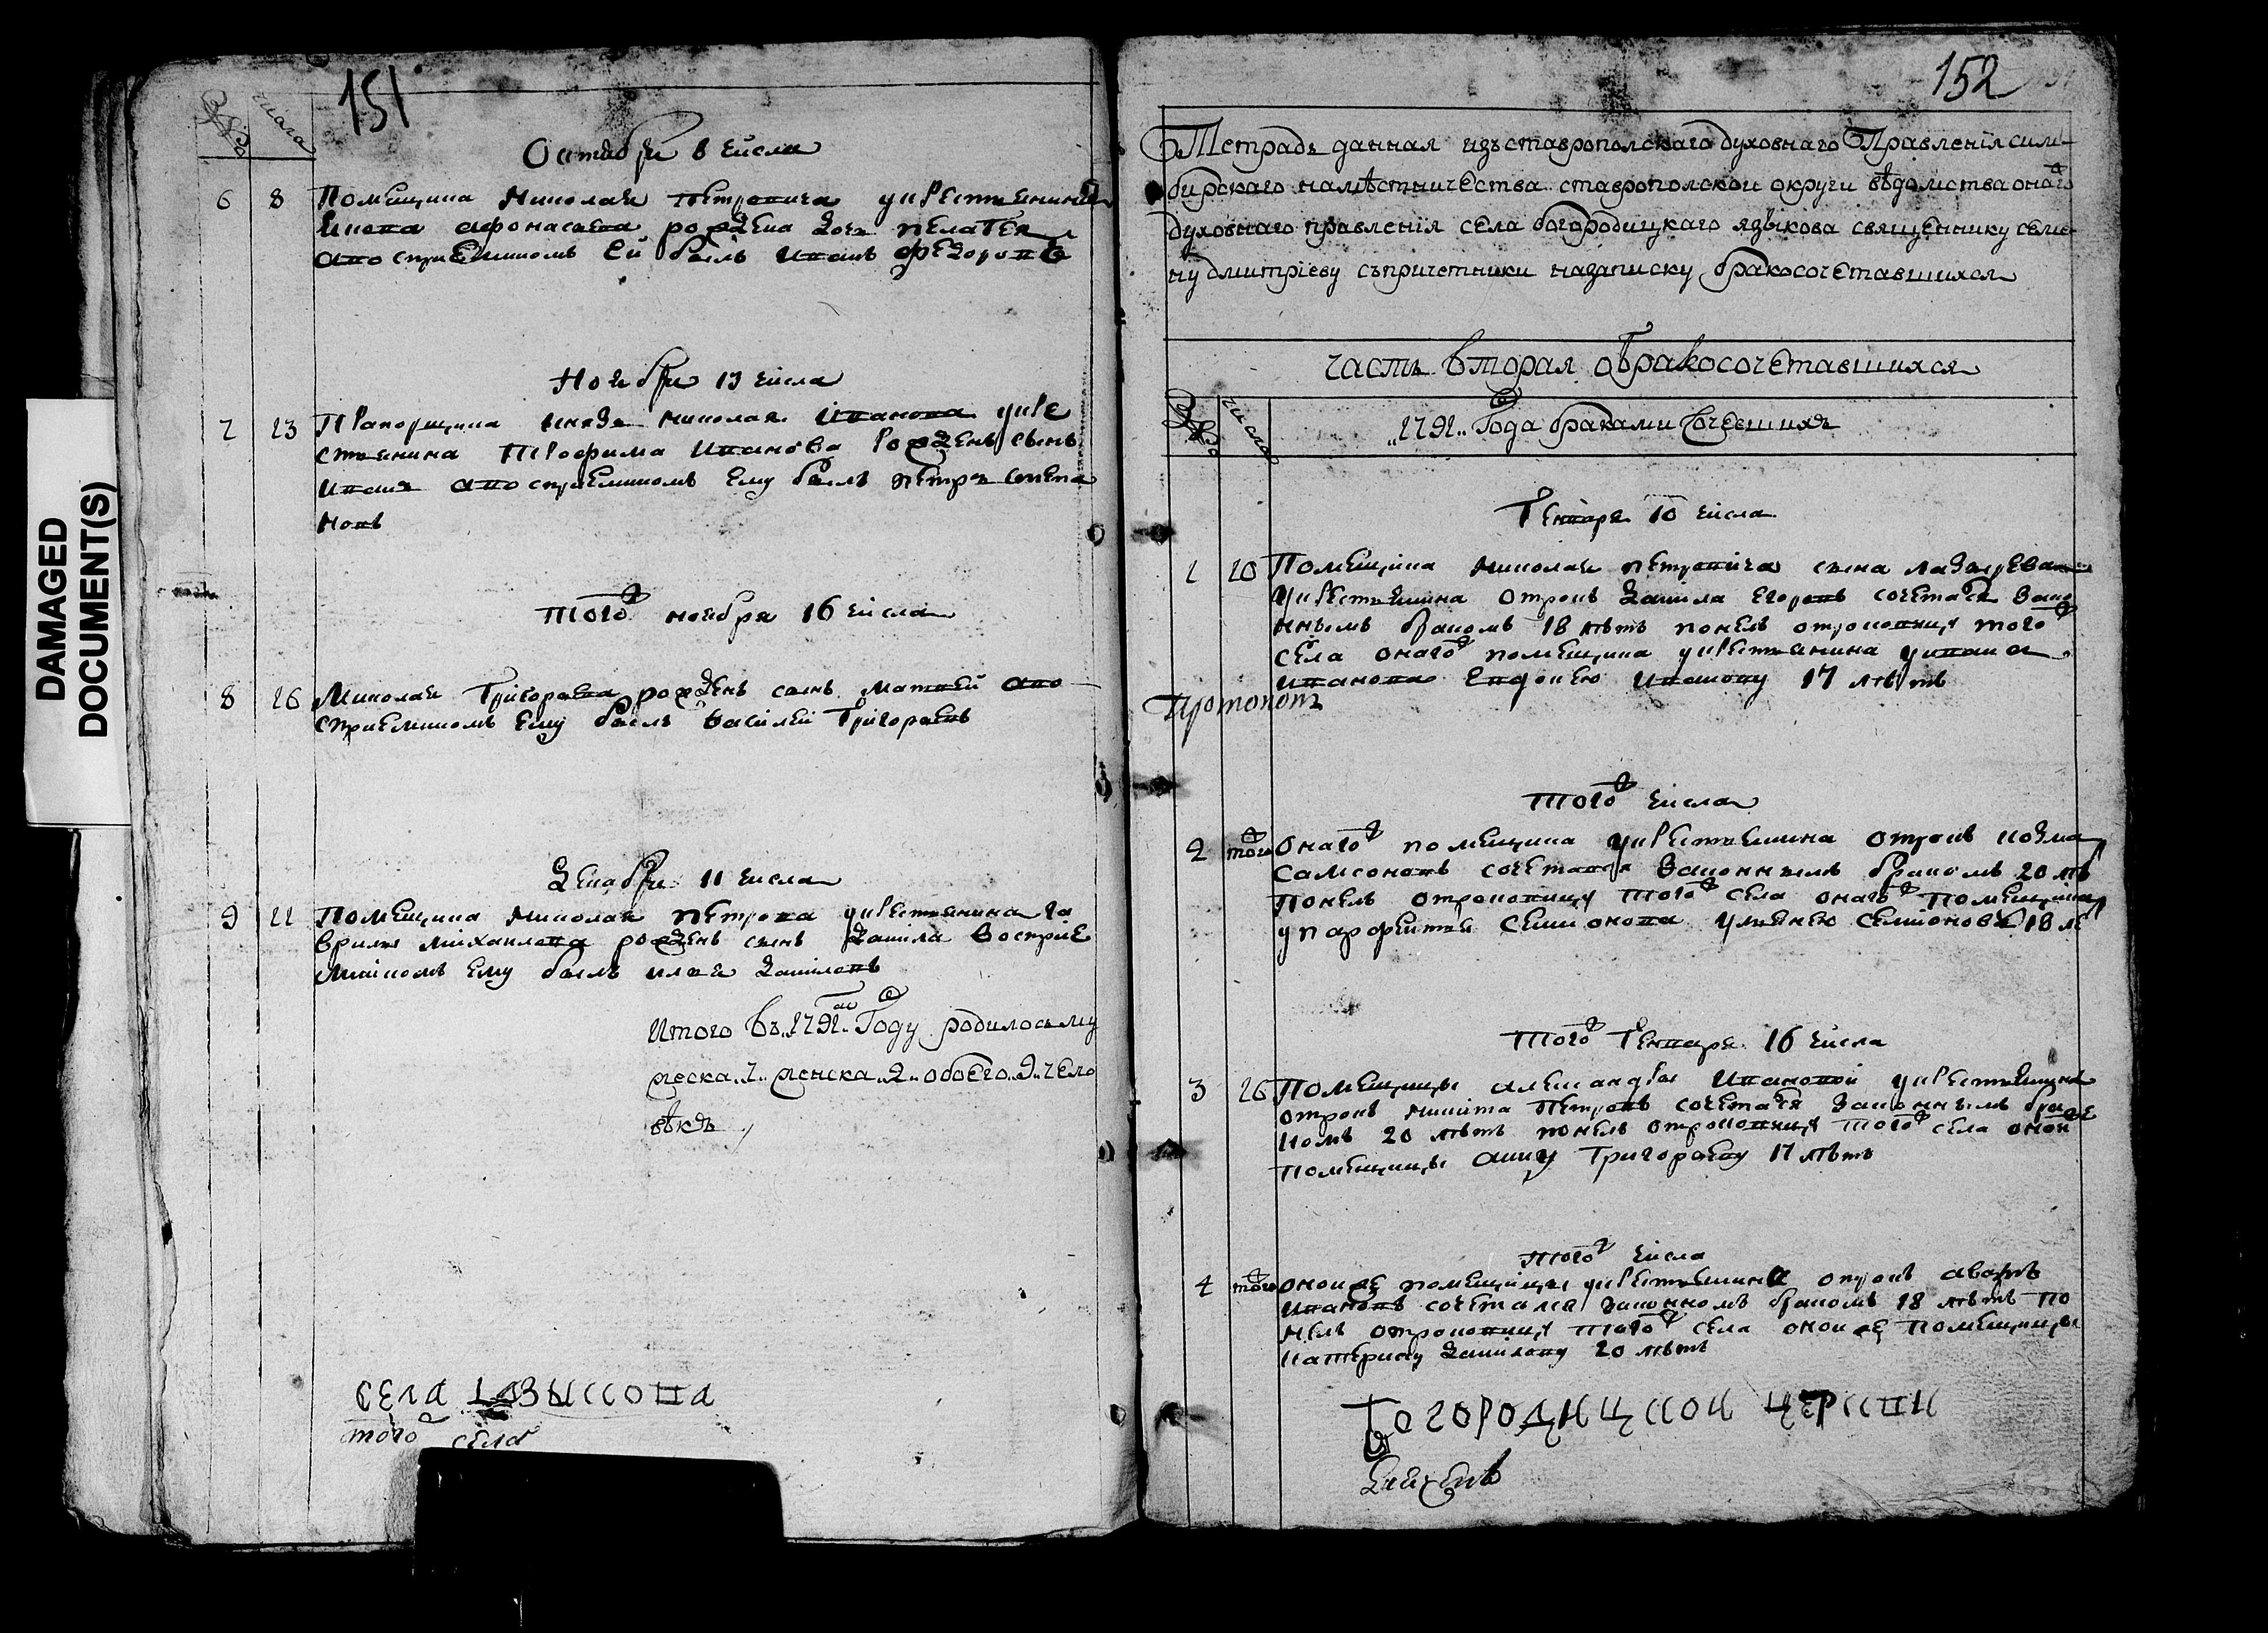 DAMAGED
DOCUMENT(S)
151
числа
Октября 8 числа
6 8 Помещика Николая Петровича у крестьянина
Якова Афонасьева рождена дочь Пелагея
а восприемником ей был Иван Федоров
Ноября 13 числа
7 13 Прапорщика князя Николая Иванова у кре
стьянина Трофима Иванова рожден сын
Иван а восприемником ему был Петр Степа
нов
Того ж ноября 16 числа
8 16 Николая Григорьева рожден сын Матвей а во
сприемником ему был Василей Григорьев
Декабря 11 числа
9 11 Помещика Николая Петрова у крестьянина Га
врилы Михайлова рожден сын Данила восприе
мником ему был Данилов
Итого въ 1791 м Году родилось му
жеска 7 женска 2 обоего 9 чело
вѣкъ
села Языкова
того ж села
152
Тетрадь данная изъ ставрополскаго духовнаго Правленія сим
бирскаго намѣстничества ставрополской округи вѣдомства онаго ж
духовнаго правленія села богородицкаго языкова священнику семе
ну дмитріеву съ причетники на записку бракосочетавшихся
часть вторая о бракосочетавшихся
числа
1791 Года браками сочетшихъ
Генваря 10 числа
1 10 Помещика Николая Петровича сына
крестьянина отрок Данила Егоров сочетася зако
нным браком 18 лѣт понел отроковицу того ж
села онаго ж помещика крестьянина
Иванова Евдокею Иванову 17 лѣт
Протопопъ
того ж числа
2 того ж Онаго ж помещика крестьянина отрок Козма
Самсонов сочетался законным браком 20 лѣ
понел отроковицу того ж села онаго ж помещика
у Парфентья Семионова Ульяну Семионову 18 лѣ
Того ж Генваря 16 числа
3 16 Помещицы Александры Ивановой крестьянина
отрок Никита Петров сочетася законным бра
ком 20 лѣт понел отроковицу того ж села оной ж
помещицы Анну Григорьеву 17 лѣт
того ж числа
4 того ж Оной же помещицы крестьянина отрок
Иванов сочетался законном браком 18 лѣт по
нел отроковицу того ж села оной же помещицы
Катерину Данилову 20 лѣт
Богородицкой церкви